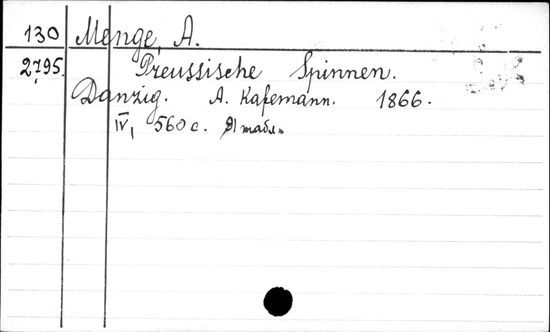 130 Menge, A.
2795. Preussische Spinnen.
Danzig. A. Kafemann. 1866.
IV, 560 с. 91 табл.